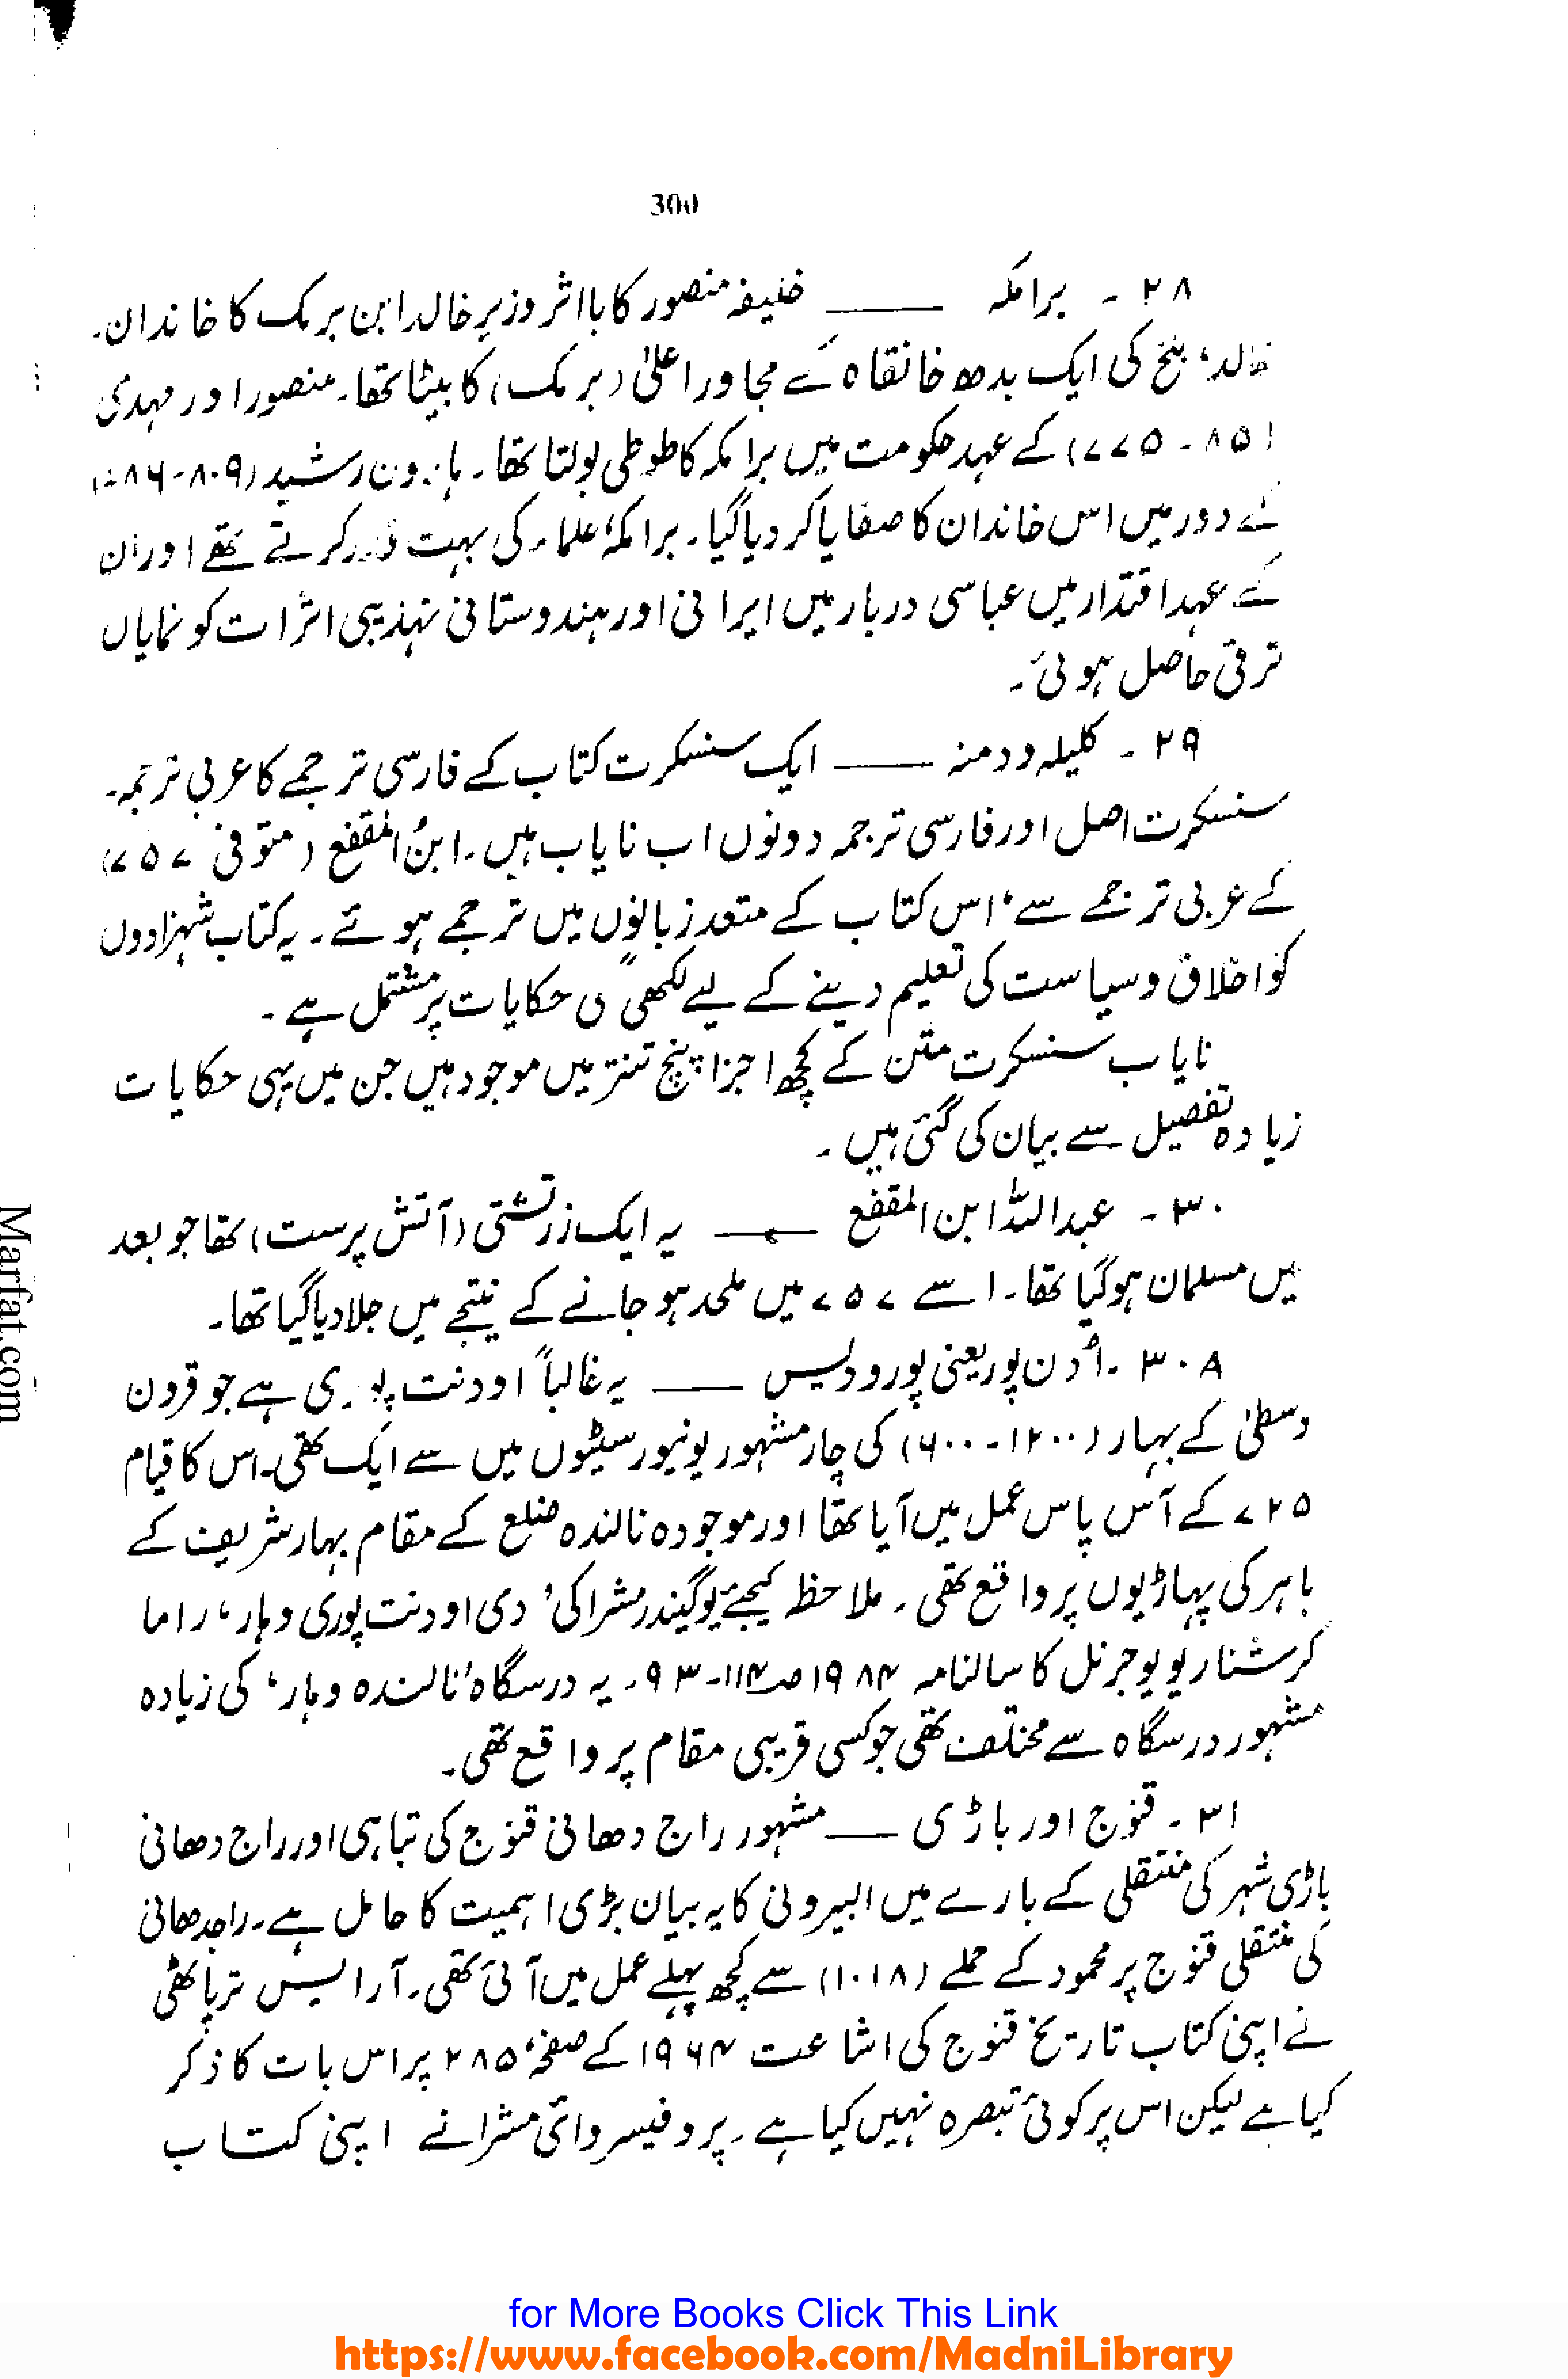 300
۲۸ ۔ برامکہ ——— خلیفہ منصور کا بااثر وزیر خالد ابن برمک کا خاندان۔
خالد، بلخ کی ایک بدھ خانقاہ کے مجاور اعلیٰ (برمک) کا بیٹا تھا۔ منصور اور مہدی
(۸۵ - ۷۷۵) کے عہد حکومت میں برامکہ کا طوطی بولتا تھا۔ ہارون رشید (۸۰۹-۷۸۶)
کے دور میں اس خاندان کا صفایا کر دیا گیا۔ برامکہ، علماء کی بہت قدر کرتے تھے اور ان
کے عہد اقتدار میں عباسی دربار میں ایرانی اور ہندوستانی تہذیبی اثرات کو نمایاں
ترقی حاصل ہوئی۔
۲۹ ۔ کلیلہ و دمنہ ——— ایک سنسکرت کتاب کے فارسی ترجمے کا عربی ترجمہ۔
سنسکرت اصل اور فارسی ترجمہ دونوں اب نایاب ہیں۔ ابنُ المقفع (متوفی ۷۵۷)
کے عربی ترجمے سے، اس کتاب کے متعدد زبانوں میں ترجمے ہوئے۔ یہ کتاب شہزادوں
کو اخلاق و سیاست کی تعلیم دینے کے لیے لکھی گئی حکایات پر مشتمل ہے۔
نایاب سنسکرت متن کے کچھ اجزا، پنچ تنتر میں موجود ہیں جن میں یہی حکایات
زیادہ تفصیل سے بیان کی گئی ہیں۔
۳۰ ۔ عبداللہ ابن المقفع ——— یہ ایک زرتشتی (آتش پرست) تھا جو بعد
میں مسلمان ہو گیا تھا۔ اسے ۷۵۷ میں ملحد ہو جانے کے نتیجے میں جلا دیا گیا تھا۔
۳۰۸ ۔ اُدن پور یعنی پورو دیس ——— یہ غالباً اودنت پوری ہے جو قرون
وسطیٰ کے بہار (۱۲۰۰-۶۰۰) کی چار مشہور یونیورسیٹوں میں سے ایک تھی۔ اس کا قیام
۷۲۵ کے آس پاس عمل میں آیا تھا اور موجودہ نالندہ ضلع کے مقام بہار شریف کے
باہر کی پہاڑیوں پر واقع تھی۔ ملاحظ کیجئے یوگیندر مشرا کی ’دی اودنت پوری وہار‘ راما
کرشنا ریویو جرنل کا سالنامہ ۱۹۸۴ ص ۱۱۴-۹۳۔ یہ درسگاہ ’نالندہ وہار‘ کی زیادہ
مشہور درسگاہ سے مختلف تھی جو کسی قریبی مقام پر واقع تھی۔
۳۱ ۔ قنوج اور باڑی ——— مشہور راج دھانی قنوج کی تباہی اور راج دھانی
باڑی شہر کی منتقلی کے بارے میں البیرونی کا یہ بیان بڑی اہمیت کا حامل ہے۔ راجدھانی
کی منتقلی قنوج پر محمود کے حملے (۱۰۱۸) سے کچھ پہلے عمل میں آئی تھی۔ آر ایس ترپاٹھی
نے اپنی کتاب تاریخ قنوج کی اشاعت ۱۹۶۴ کے صفحہ ۲۸۵ پر اس بات کا ذکر
کیا ہے لیکن اس پر کوئی تبصرہ نہیں کیا ہے۔ پروفیسر وائی مشرا نے اپنی کتاب
Marfat.com
for More Books Click This Link
https://www.facebook.com/MadniLibrary